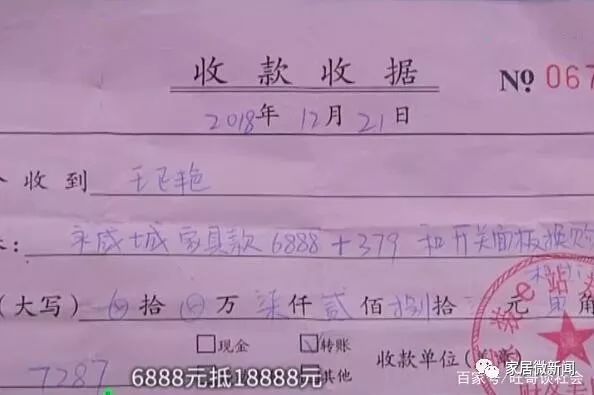 收款收据
№ 067
2018年12月21日
收到 王卫艳
家具款 6888+379 和开关面板换购
(大写) 拾 万 柒仟 贰佰 捌拾 元 角
现金 转账
7287 收款单位(
其他
6888元抵18888元
e站
家居微新闻
百家号/旺哥谈社会